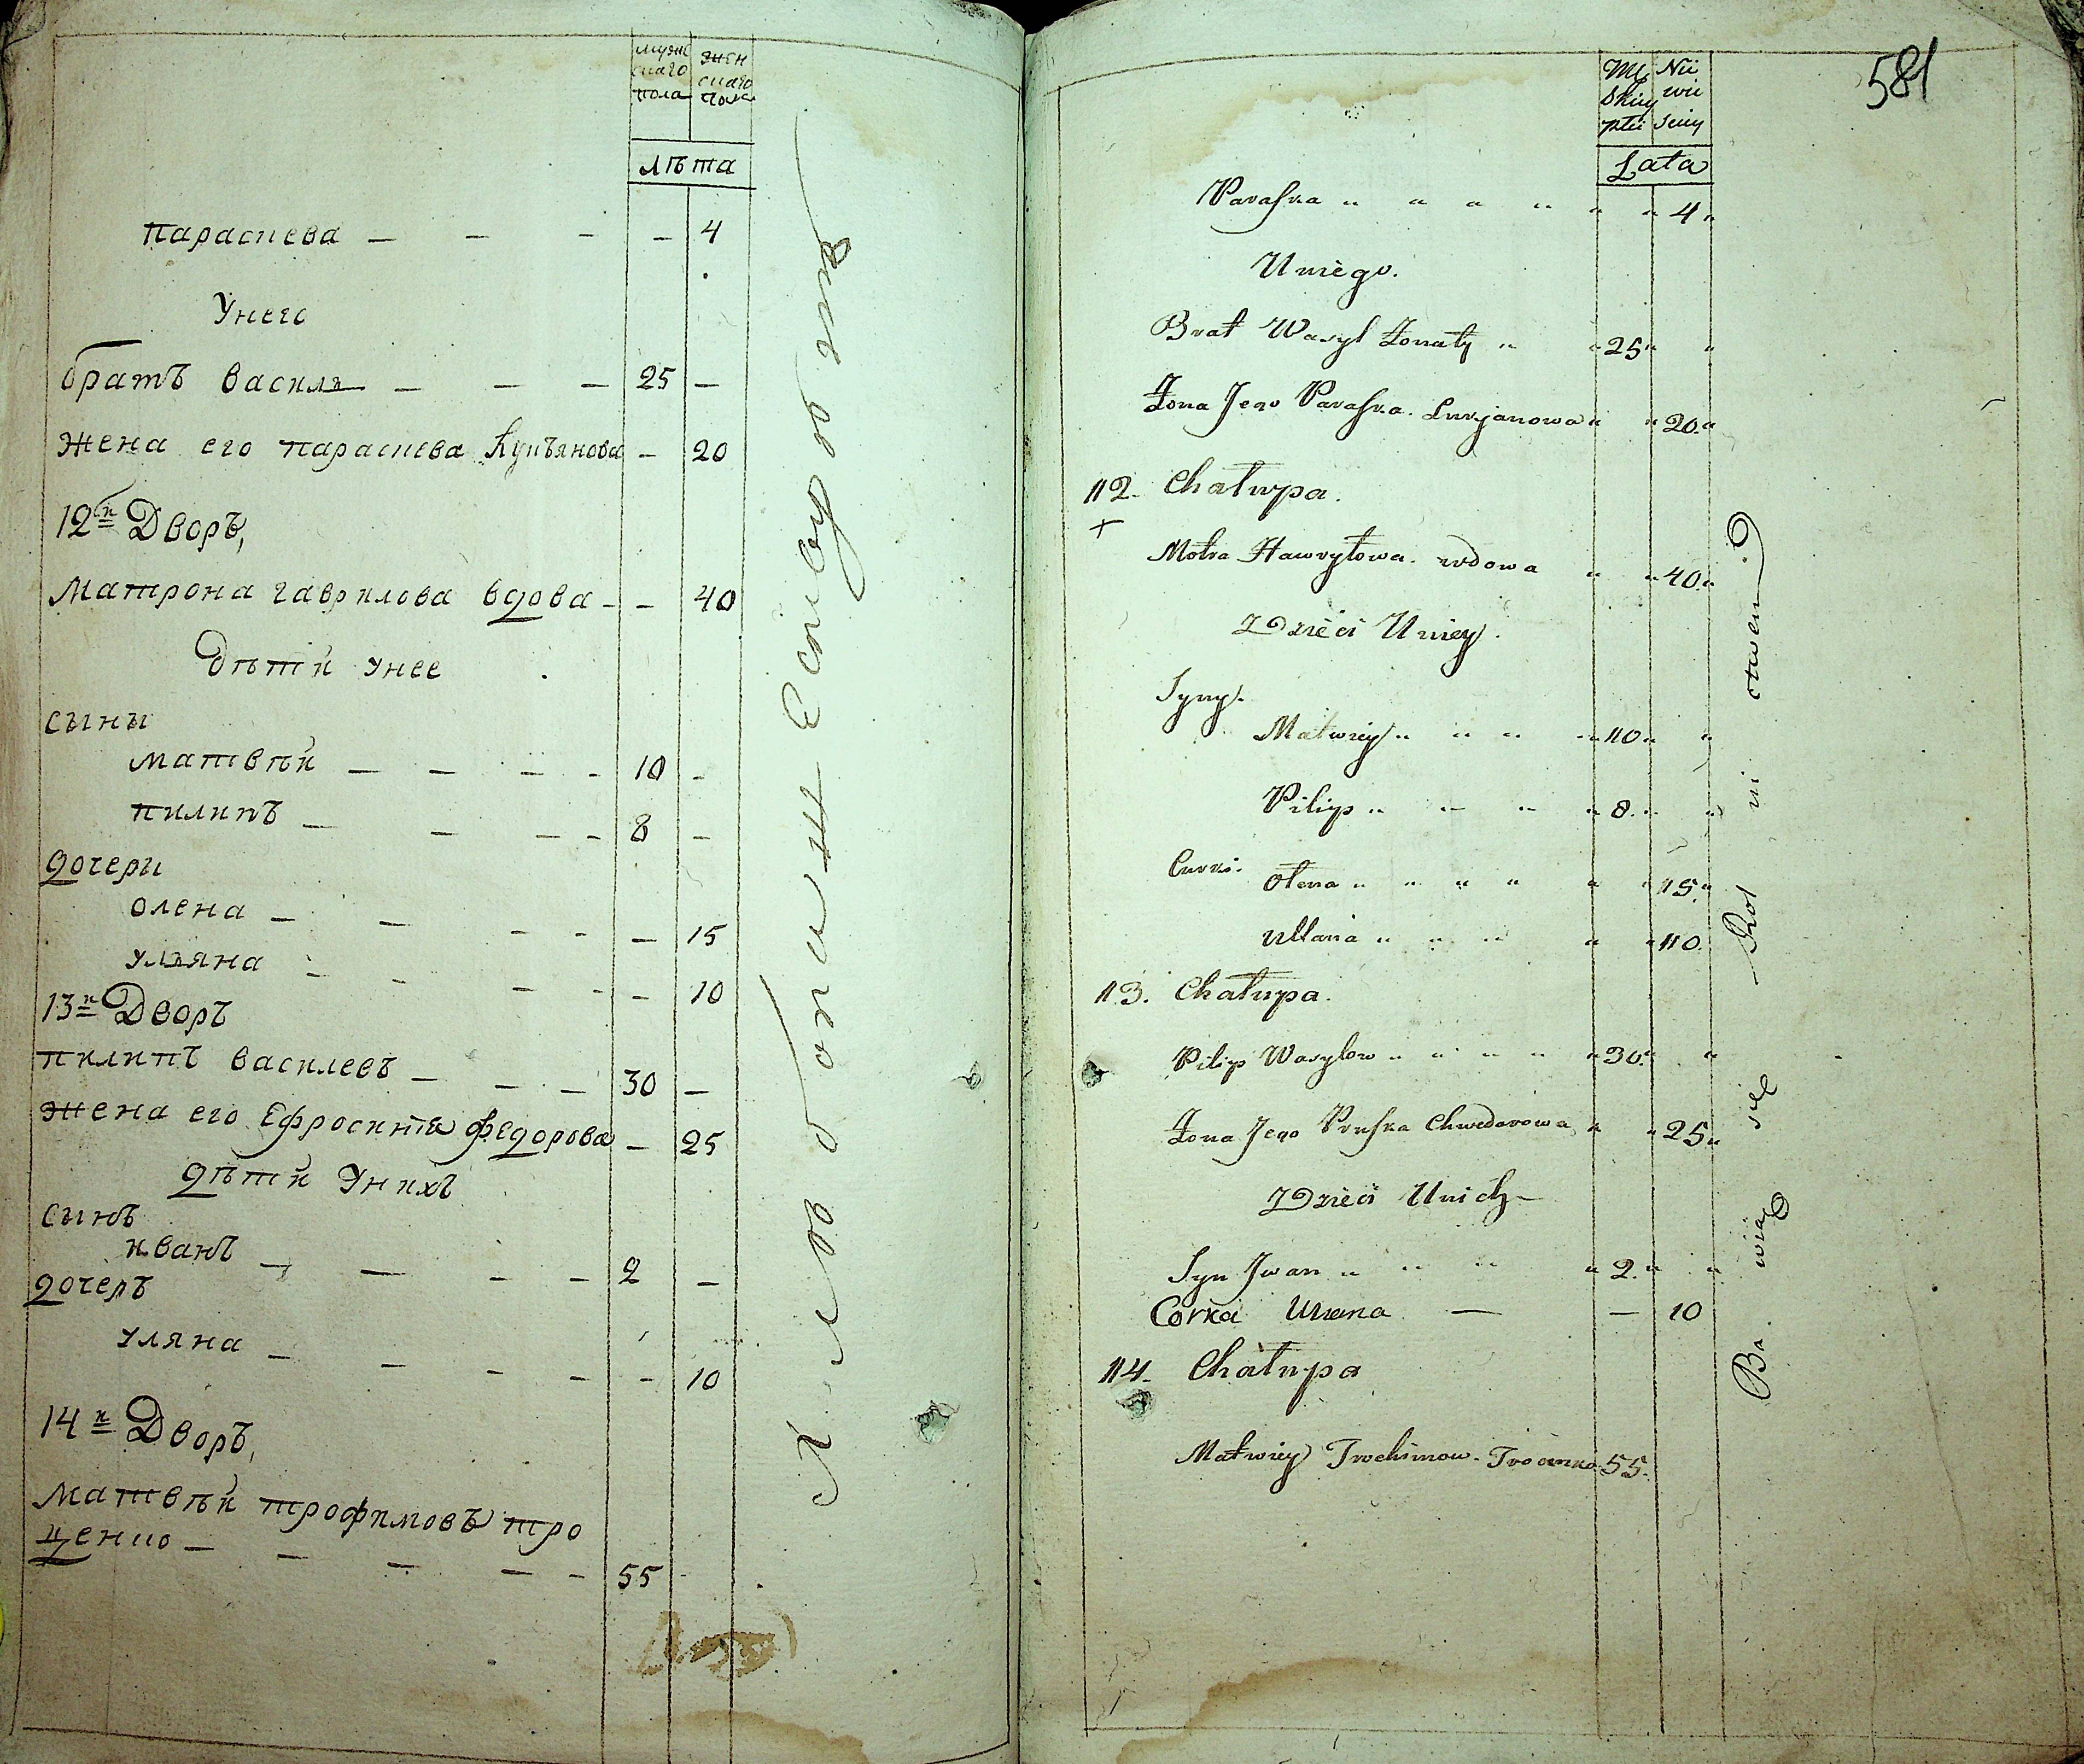 мужскаго пола
женскаго пола
лѣта
параскева — — — — 4
Унего
братъ василь — — — 25 —
жена его параскева Лукъянова — 20
12й Дворъ,
Матрона гаврилова вдова - — 40
дѣти унее
сыны
матвѣй — — — - 10 -
пилипъ — — — - 8 —
дочери
олена — — - - — 15
ульяна - - - - — 10
13й Дворъ
пилипъ василевъ — — — 30 —
жена его Ефросинія федорова — 25
дѣти Унихъ
сынъ
иванъ — — — — 2 —
дочеръ
уляна — — — — - 10
14й Дворъ,
Матвѣй трофимовъ тро
ценко — — — — - 55
581
Męskiey płci
Niewieściey
Lata
Paraska 4
U niego.
Brat Wasyl Żonaty 25
Żona Jego Paraska. Lukjanowa 20
12. Chałupa.
+
Motra Hawryłowa. wdowa 40
Dzieci U niey.
Syny.
Matwiey 10
Pilip 8
Curki. Ołena 15
Ullana 10
13. Chałupa.
Pilip Wasylow 30
Żona Jego Pruska Chwedorowa 25
Dzieci U nich
Syn Jwan 2
Corka Uliana — — 10
14. Chałupa
Matwiey Trochimow. Trocenko 55.